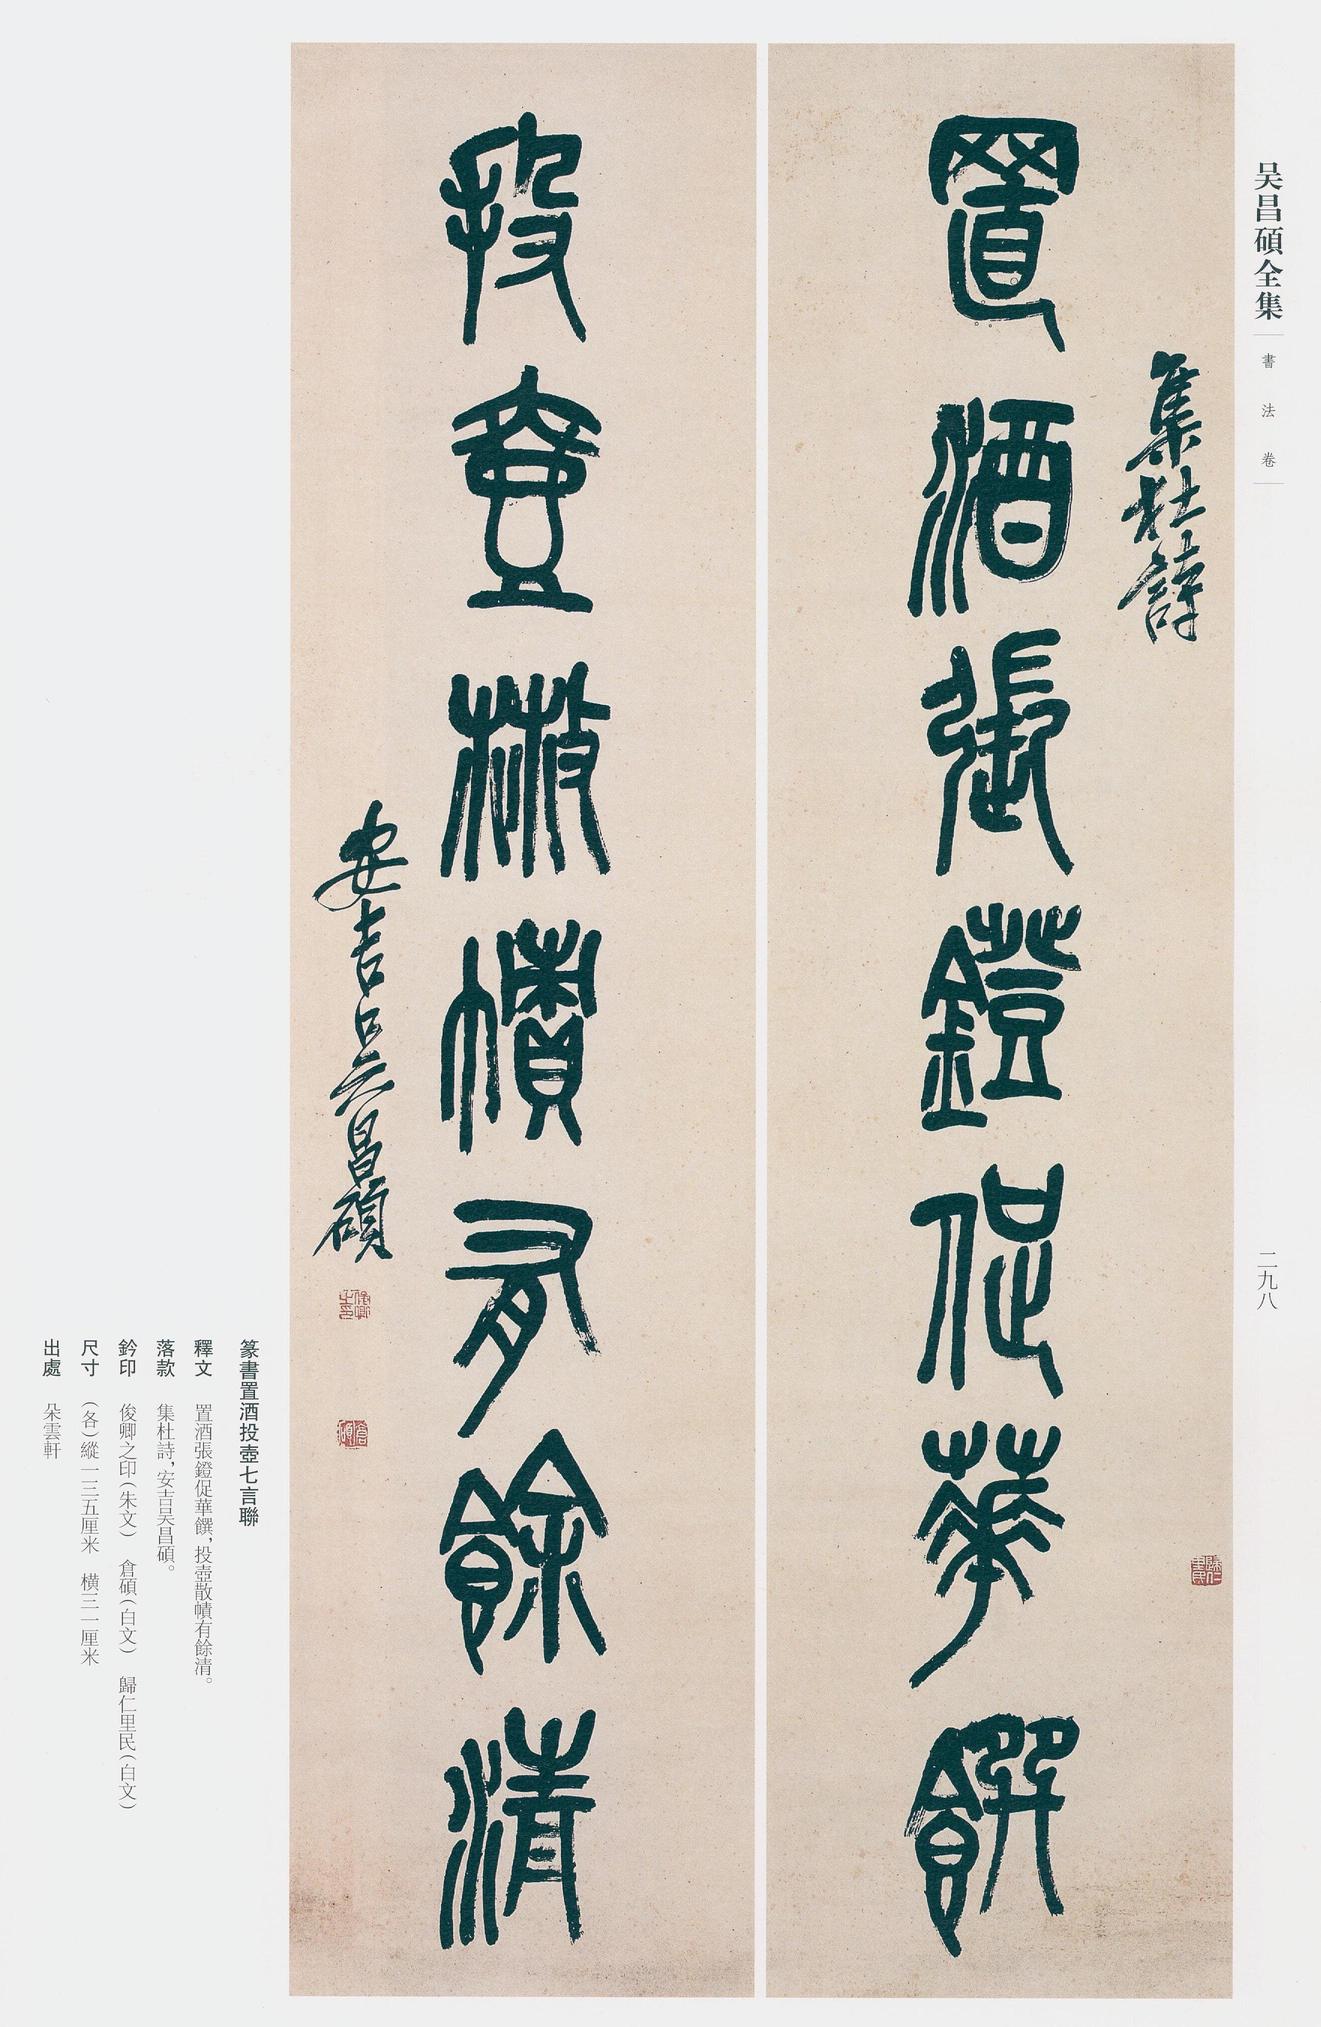 吴昌碩全集
書法卷
二九八
集杜詩
置酒張鐙促華饌
投壺散幘有餘清
安吉吴昌碩
俊卿之印
倉碩
歸仁里民
篆書置酒投壺七言聯
釋文　置酒張鐙促華饌，投壺散幘有餘清。
落款　集杜詩，安吉吴昌碩。
鈐印　俊卿之印（朱文）　倉碩（白文）　歸仁里民（白文）
尺寸　（各）縱一三五厘米　横三一厘米
出處　朵雲軒